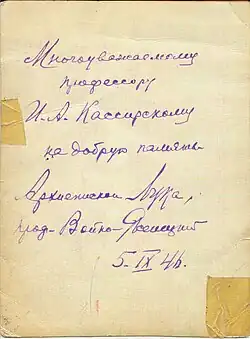 Многоуважаемому
профессору
И.А. Кассирскому
на добрую память.
Архиепископ Лука,
проф. Войно-Ясенецкий
5.IX 46.